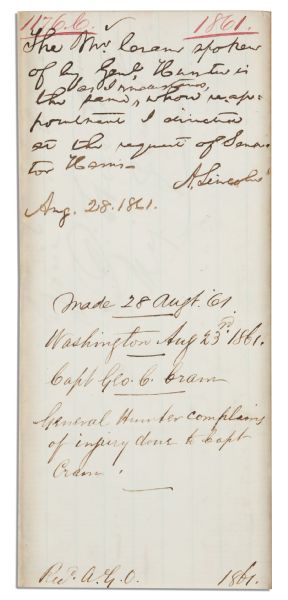 1176.C. 1861.
The Mr. Cram spoken
of by Genl. Hunter is
as I understand,
the same, whose re-ap-
pointment I directed
at the request of Sena-
tor Harris.
A. Lincoln
Aug. 28. 1861.
Made 28 Augt. '61
Washington Aug 23rd 1861.
Capt Geo. C. Cram
General Hunter complains
of injury done to Capt
Cram.
Recd. A.G.O. 1861.